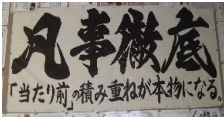 凡事徹底
「当たり前」の積み重ねが本物になる。